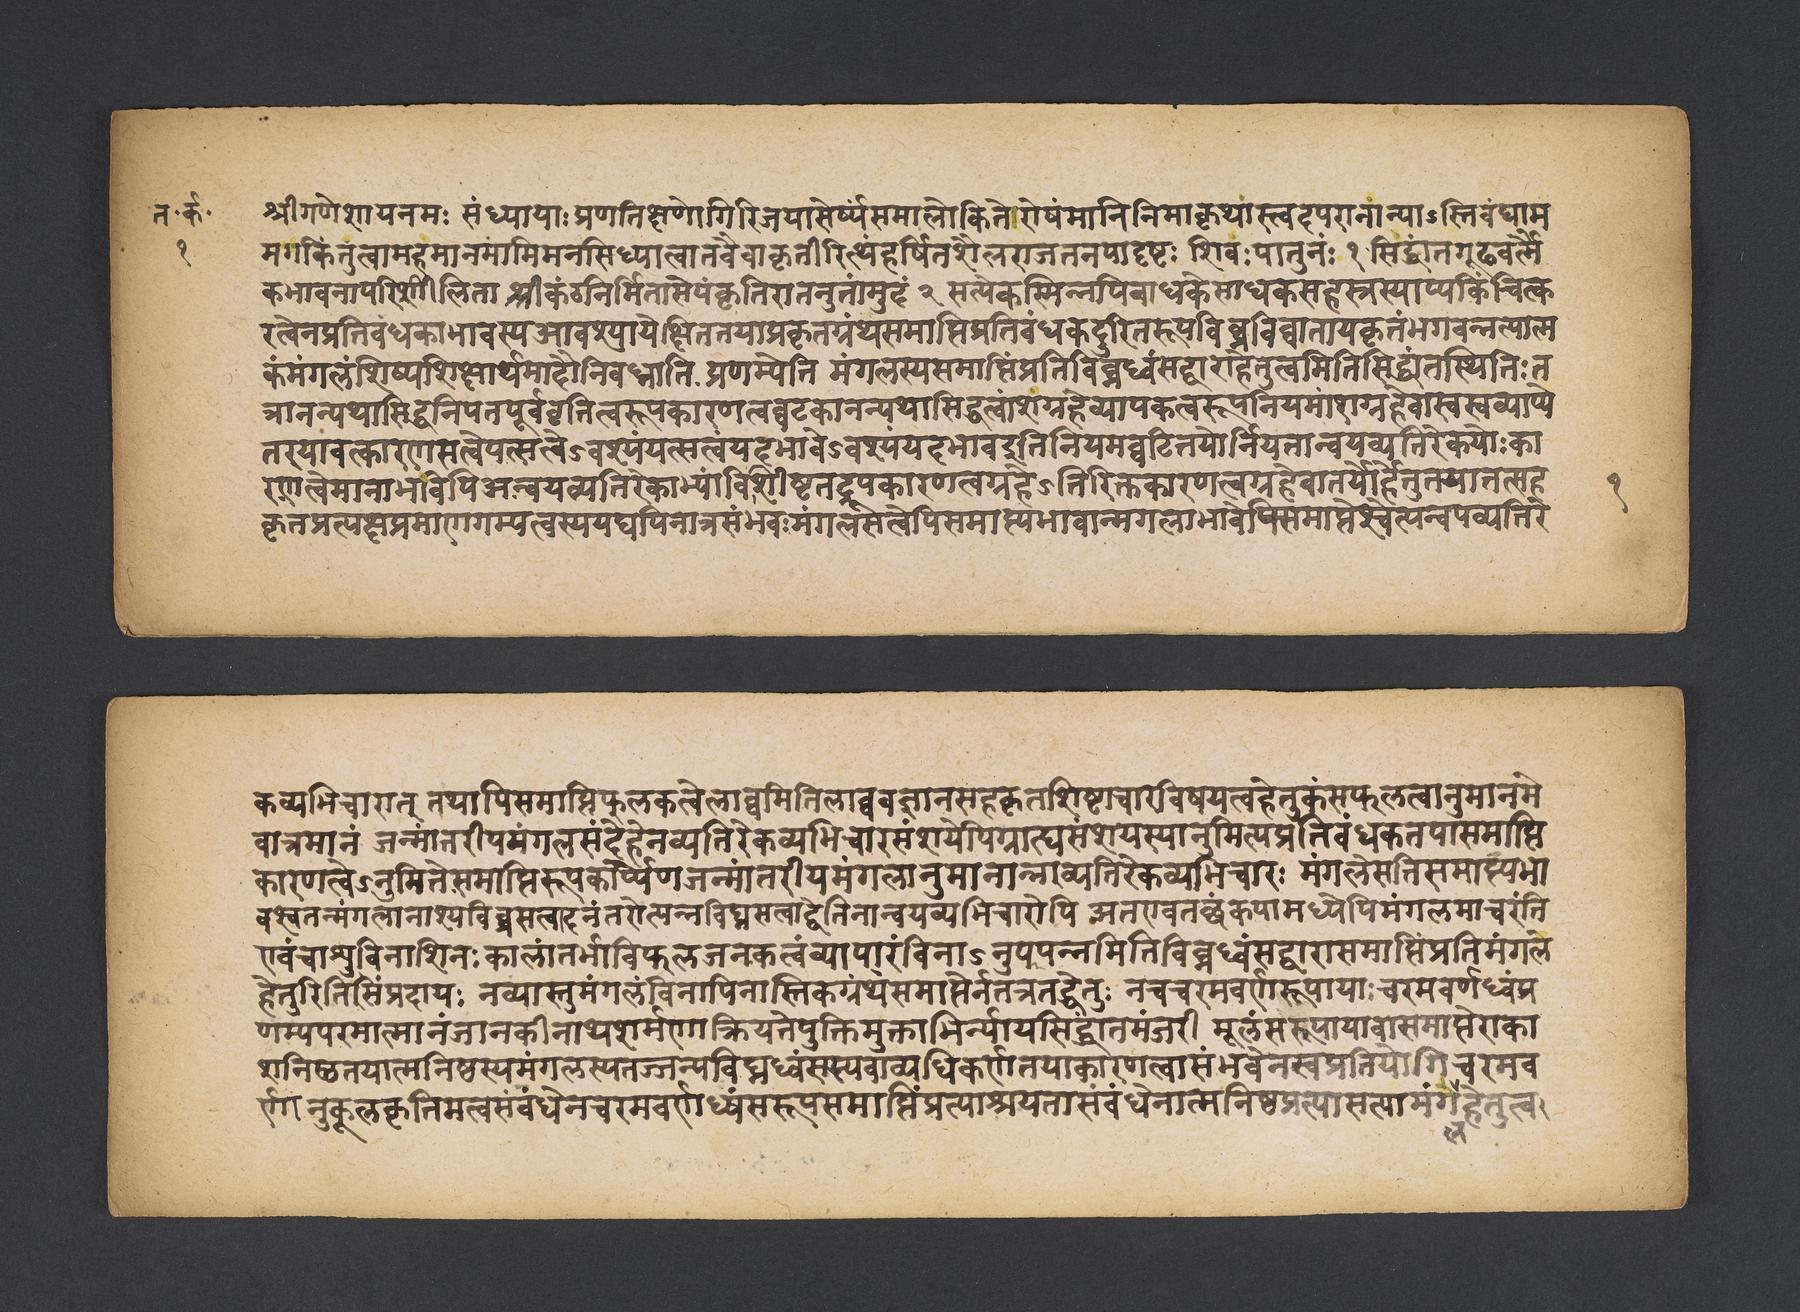 त॰र्क॰
१
श्रीगणेशायनमः संध्यायाःप्रणतिक्षणेगिरिजयासेर्ष्यंसमालोकितेरोषंमानिनिमाकृथास्त्वदपरानान्याऽस्तिवंद्याम
मगकिंतुत्वामहमानमामिमनसिध्यात्वातवैवाकृतीरित्थंहर्षितशैलराजतनयादृष्टः शिवःपातुनः १ सिद्धांतगूढवर्त्मै
कभावनापरिशीलिता श्रीकंठनिर्मितासेयंकृतिरातनुतांमुदं २ सत्येकस्मिन्नपिबाधकेसाधकसहस्रस्याप्यकिंचित्क
रत्वेनप्रतिबंधकाभावस्यआवश्यापेक्षिततयाप्रकृतग्रंथसमाप्तिप्रतिबंधकदुरितरूपविघ्नविघातायकृतंभगवन्नत्यात्म
कंमंगलंशिष्यशिक्षार्थमादौनिबध्नाति प्रणम्येति मंगलस्यसमाप्तिंप्रतिविघ्नध्वंसद्वाराहेतुत्वमितिसिद्धांतस्थितिःत
त्रानन्यथासिद्धनियतपूर्ववृत्तित्वरूपकारणत्वघटकानन्यथासिद्धत्वांशग्रहेव्यापकत्वरूपनियमांशग्रहेवास्वस्वव्याप्ये
तरयावत्कारणसत्वेयत्सत्वेऽवश्यंयत्सत्वंयदभावेऽवश्यंयदभावइतिनियमघटितयोर्नियतान्वयव्यतिरेकयोःका
रणत्वेमानाभावेपिअन्वयव्यतिरेकाभ्यांविशिष्टतद्रूपकारणत्वग्रहेऽतिरिक्तकारणत्वग्रहेवातयोर्हेतुतयातत्सह
कृतप्रत्यक्षप्रमाणगम्यत्वस्ययद्यपिनात्रसंभवःमंगलसत्वेपिसमाप्त्यभावान्मगलाभावेपिसमाप्तेश्चेत्यन्वयव्यतिरे
१
कव्यभिचारात् तथापिसमाप्तिफलकत्वेलाघवमितिलाघवज्ञानसहकृतशिष्टाचारविषयत्वहेतुकंसफलत्वानुमानमे
वात्रमानं जन्मांतरीयमंगलसंदेहेनव्यतिरेकव्यभिचारसंशयेपिग्राह्यसंशयस्यानुमित्यप्रतिबंधकतयासमाप्ति
कारणत्वेऽनुमितेसमाप्तिरूपकार्य्येणजन्मांतरीयमंगलानुमानान्नव्यतिरेकव्यभिचारः मंगलेसतिसमाप्त्यभा
वश्चतन्मंगलानाश्यविघ्नसत्वादनंतरोत्पन्नविघ्नसत्वाद्वेतिनान्वयव्यभिचारोपि अतएवतच्छंकयामध्येपिमंगलमाचरंति
एवंचाशुविनाशिनःकालांतर्भाविफलजनकत्वंव्यापारंविनाऽनुपपन्नमितिविघ्नध्वंसद्वारासमाप्तिंप्रतिमंगले
हेतुरितिसंप्रदायः नव्यास्तुमंगलंविनापिनास्तिकग्रंथसमाप्तेर्नतत्रतद्धेतुः नचचरमवर्णरूपायाःचरमवर्णध्वंप्र
णम्यपरमात्मानंजानकीनाथशर्मणा क्रियतेयुक्तिमुक्ताभिर्न्यायसिद्धांतमंजरी मूलंसरूपायावासमाप्तेराका
शनिष्ठतयात्मनिष्ठस्यमंगलस्यतज्जन्यविघ्नध्वंसस्यवाव्यधिकर्णतयाकारणत्वासंभवेनस्वप्रतियोगिचरमव
र्णानुकूलकृतिमत्वसंबंधेनचरमवर्णध्वंसरूपसमाप्तिंप्रत्याश्रयतासंबंधेनात्मनिष्ठप्रत्यासत्यामंगहेतुत्व